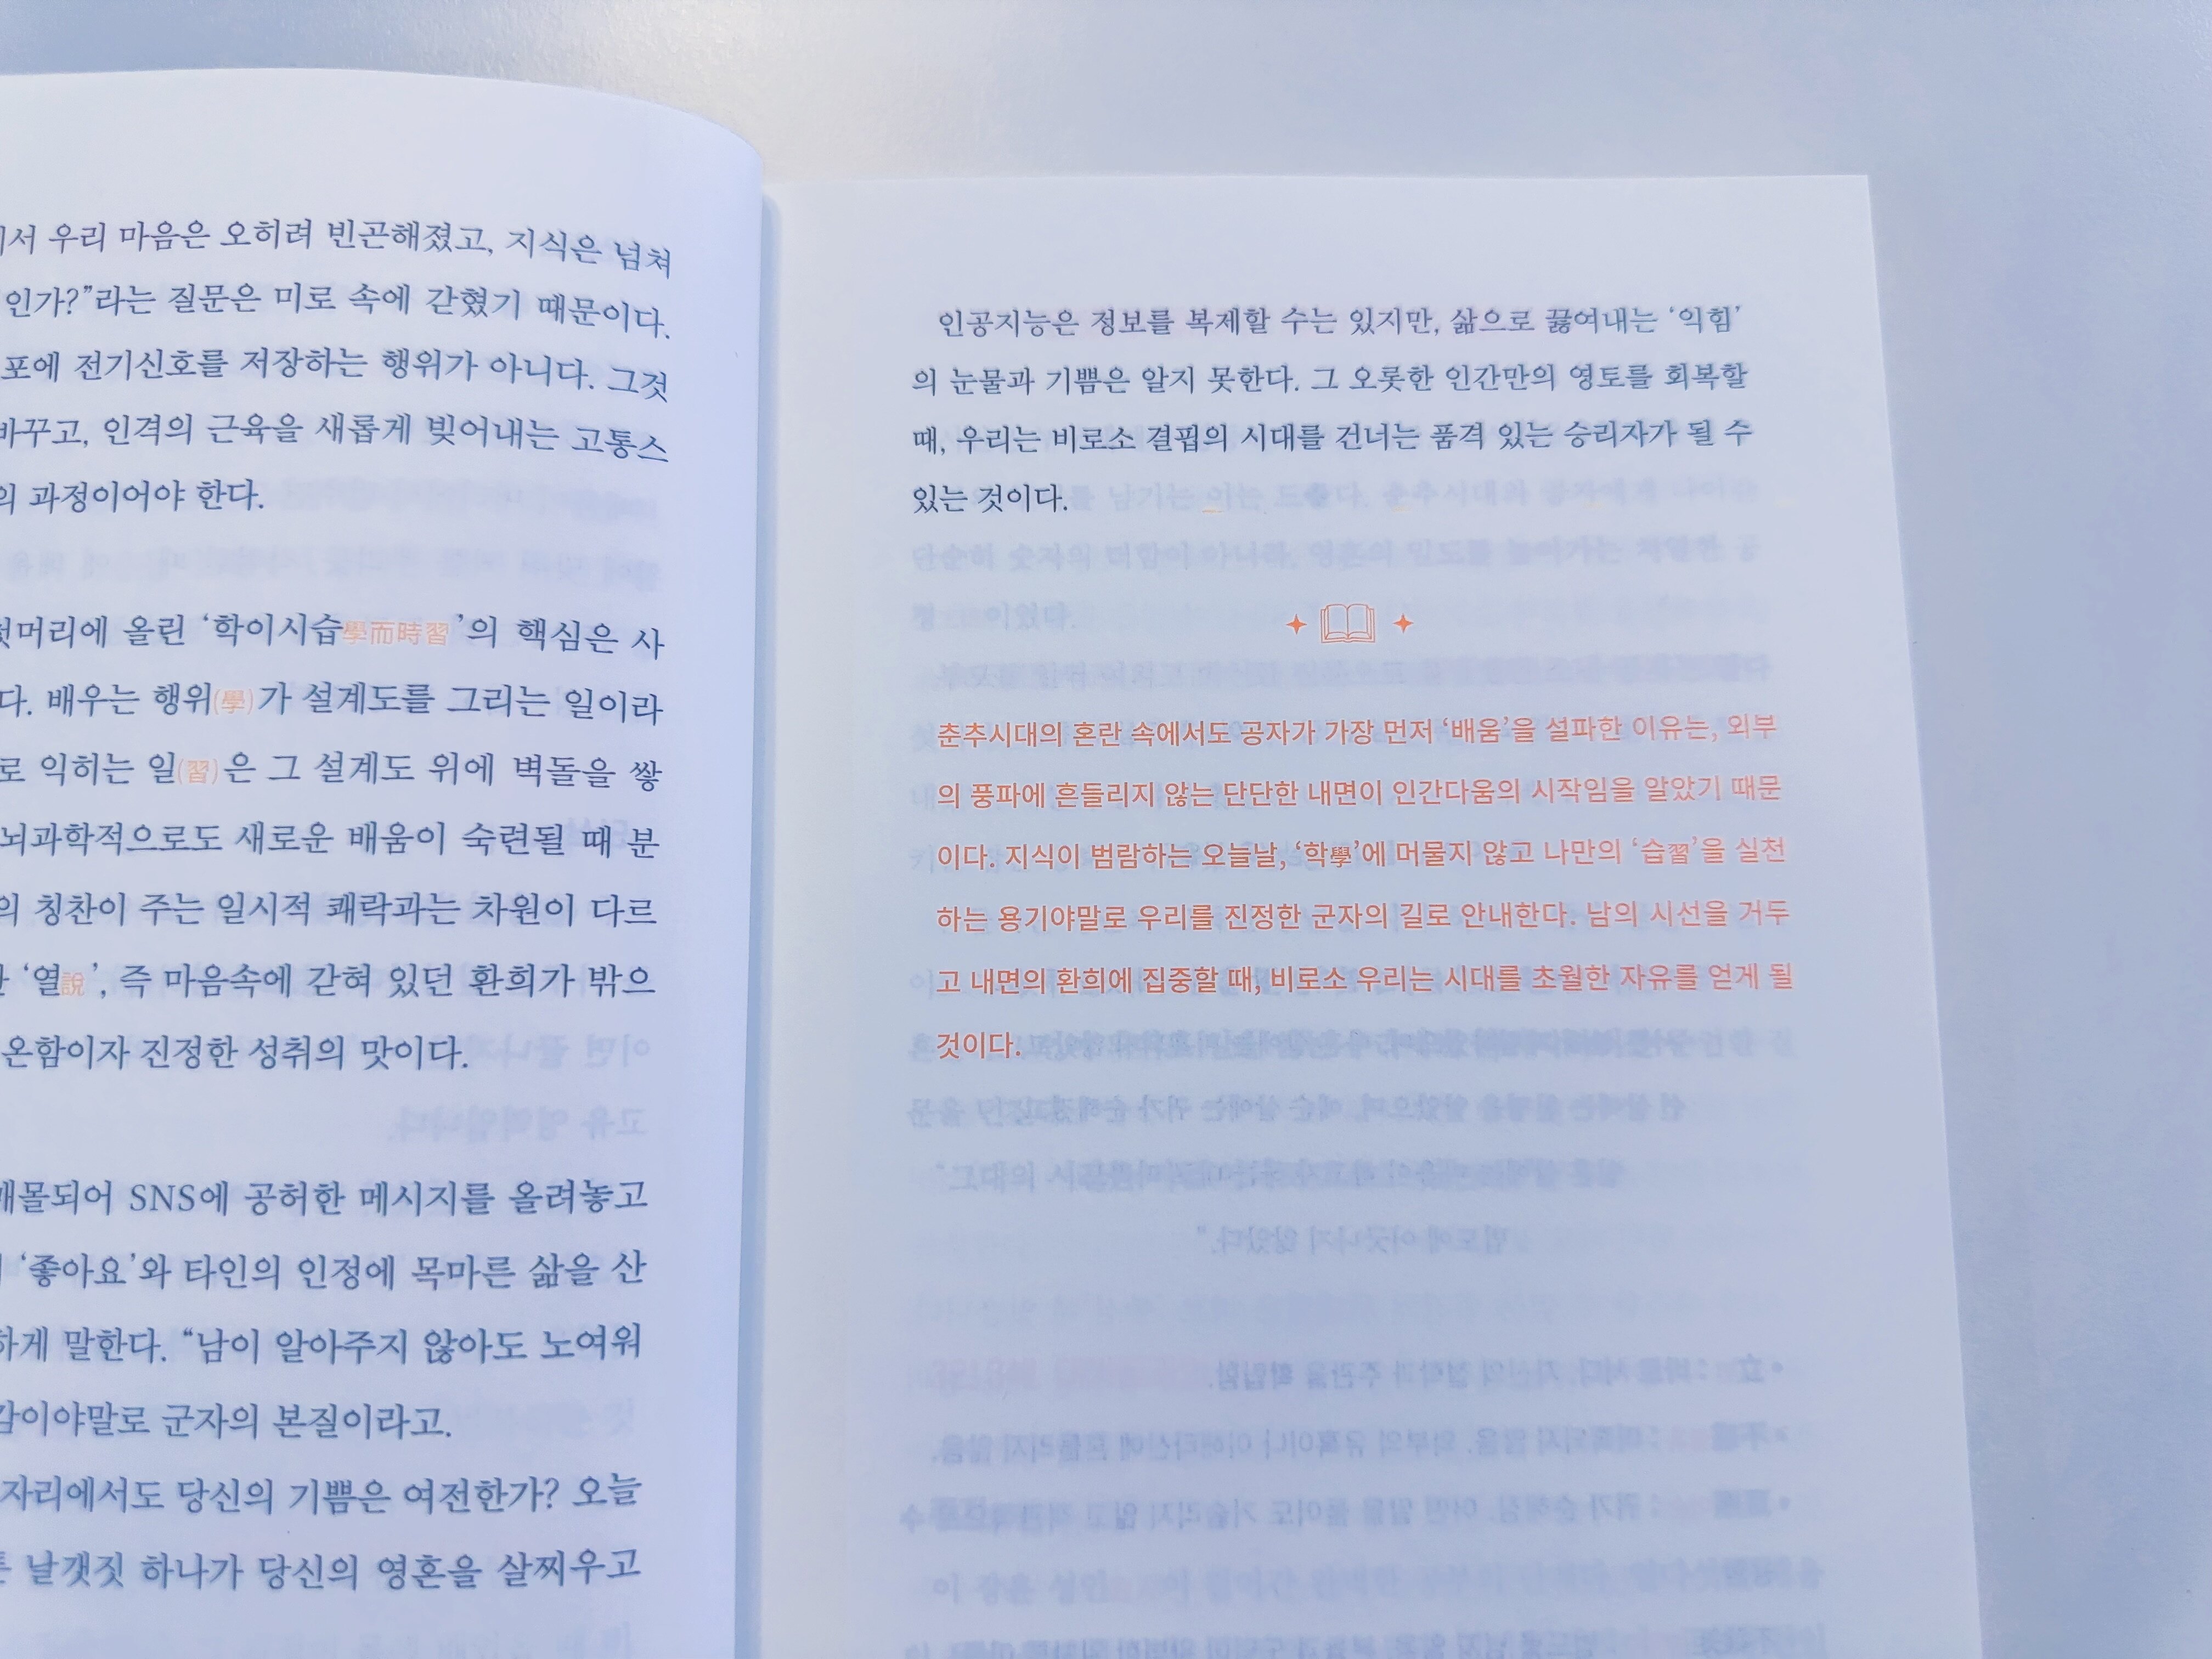 서 우리 마음은 오히려 빈곤해졌고, 지식은 넘쳐
인가?”라는 질문은 미로 속에 갇혔기 때문이다.
포에 전기신호를 저장하는 행위가 아니다. 그것
바꾸고, 인격의 근육을 새롭게 빚어내는 고통스
의 과정이어야 한다.
첫머리에 올린 ‘학이시습學而時習’의 핵심은 사
다. 배우는 행위(學)가 설계도를 그리는 일이라
로 익히는 일(習)은 그 설계도 위에 벽돌을 쌓
뇌과학적으로도 새로운 배움이 숙련될 때 분
의 칭찬이 주는 일시적 쾌락과는 차원이 다르
‘열說’, 즉 마음속에 갇혀 있던 환희가 밖으
온함이자 진정한 성취의 맛이다.
매몰되어 SNS에 공허한 메시지를 올려놓고
‘좋아요’와 타인의 인정에 목마른 삶을 산
하게 말한다. “남이 알아주지 않아도 노여워
감이야말로 군자의 본질이라고.
자리에서도 당신의 기쁨은 여전한가? 오늘
날갯짓 하나가 당신의 영혼을 살찌우고
인공지능은 정보를 복제할 수는 있지만, 삶으로 끓여내는 ‘익힘’
의 눈물과 기쁨은 알지 못한다. 그 오롯한 인간만의 영토를 회복할
때, 우리는 비로소 결핍의 시대를 건너는 품격 있는 승리자가 될 수
있는 것이다.
춘추시대의 혼란 속에서도 공자가 가장 먼저 ‘배움’을 설파한 이유는, 외부
의 풍파에 흔들리지 않는 단단한 내면이 인간다움의 시작임을 알았기 때문
이다. 지식이 범람하는 오늘날, ‘학學’에 머물지 않고 나만의 ‘습習’을 실천
하는 용기야말로 우리를 진정한 군자의 길로 안내한다. 남의 시선을 거두
고 내면의 환희에 집중할 때, 비로소 우리는 시대를 초월한 자유를 얻게 될
것이다.